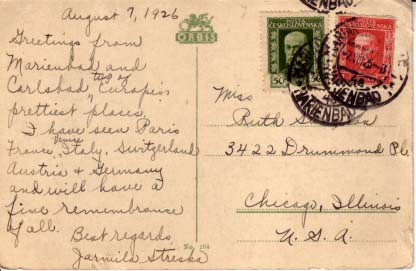 August 7, 1926
Greetings from
Marienbad and
Carlsbad two of Europe's
prettiest places.
I have seen Paris
France, Italy, Switzerland
Austria & Germany
and will have a
fine remembrance
of all.
Best regards,
Jarmila Streska
ORBIS
No.
ČESKOSLOVENSKÁ
50
ČESKOSLOVENSKÁ
MARIENBAD
Miss
Ruth
3422 Drummond Pl
Chicago, Illinois
U.S.A.